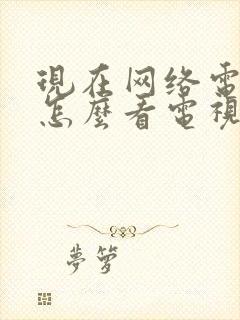 現在网络電
怎麼看電視
夢箩